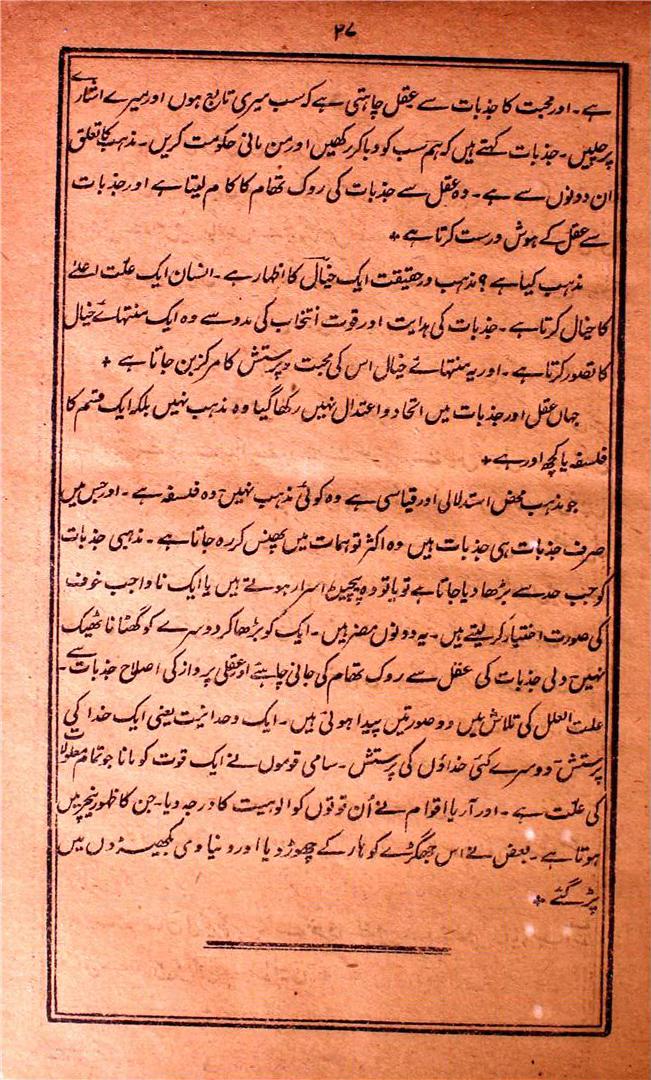 ۲۷
ہے۔ اور محبت کا جذبات سے عقل چاہتی ہے کہ سب میری تابع ہوں اور میرے اشارے
پر چلیں۔ جذبات کہتے ہیں کہ ہم سب کو دبا کر رکھیں اور من مانی حکومت کریں۔ مذہب کا تعلق
ان دونوں سے ہے۔ وہ عقل سے جذبات کی روک تھام کا کام لیتا ہے اور جذبات
سے عقل کے ہوش درست کرتا ہے +
مذہب کیا ہے؟ مذہب درحقیقت ایک خیال کا اظہار ہے۔ انسان ایک علّت اعلےٰ
کا خیال کرتا ہے۔ جذبات کی ہدایت اور قوت انتخاب کی مدد سے وہ ایک منتہائے خیال
کا تصور کرتا ہے۔ اور یہ منتہائے خیال اس کی محبت و پرستش کا مرکز بن جاتا ہے +
جہاں عقل اور جذبات میں اتحاد و اعتدال نہیں رکھا گیا وہ مذہب نہیں بلکہ ایک قسم کا
فلسفہ یا کچھ اور ہے +
جو مذہب محض استدلالی اور قیاسی ہے وہ کوئی مذہب نہیں وہ فلسفہ ہے۔ اور جس میں
صرف جذبات ہی جذبات ہیں وہ اکثر توہمات میں پھنس کر رہ جاتا ہے۔ مذہبی جذبات
کو جب حد سے بڑھا دیا جاتا ہے تو یا تو وہ پیچیدہ اسرار ہوتے ہیں یا ایک ناواجب خوف
کی صورت اختیار کر لیتے ہیں۔ یہ دونوں مضر ہیں۔ ایک کو بڑھا کر دوسرے کو گھٹانا ٹھیک
نہیں دلی جذبات کی عقل سے روک تھام کی جانی چاہئے اور عقلی پرواز کی اصلاح جذبات سے۔
علت العلل کی تلاش میں دو صورتیں پیدا ہوتی ہیں۔ ایک وحدانیت یعنی ایک خدا کی
پرستش۔ دوسرے کئی خداؤں کی پرستش۔ سامی قوموں نے ایک قوت کو مانا جو تمام معلولات
کی علّت ہے۔ اور آریا اقوام نے اُن قوتوں کو الوہیت کا درجہ دیا۔ جن کا ظہور نیچر میں
ہوتا ہے۔ بعض نے اس جھگڑے کو ہار کے چھوڑ دیا اور دنیاوی بکھیڑوں میں
پڑ گئے +